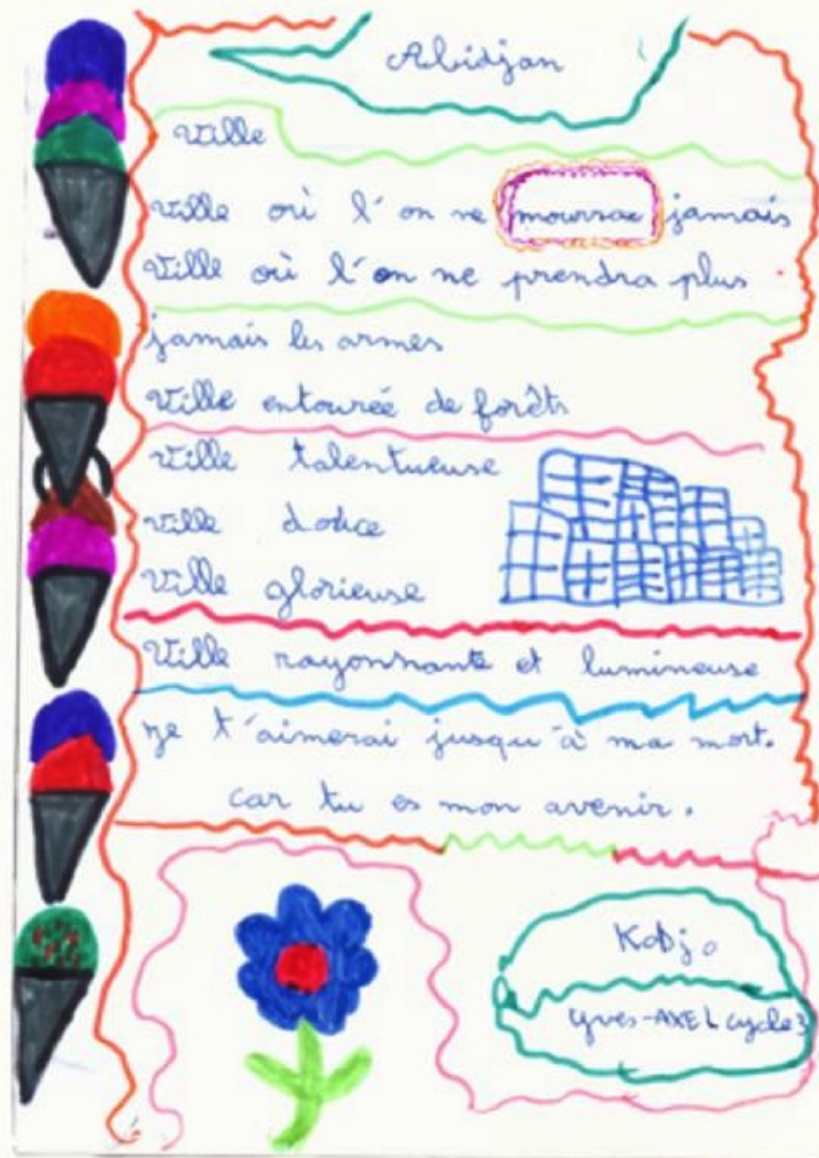 Abidjan
Ville
Ville où l'on ne mourrae jamais
Ville où l'on ne prendra plus
jamais les armes
Ville entourée de forêts
Ville talentueuse
Ville douce
Ville glorieuse
Ville rayonnante et lumineuse
je t'aimerai jusqu'à ma mort.
car tu es mon avenir.
Kobjo
Yves-AXEL cycle 3